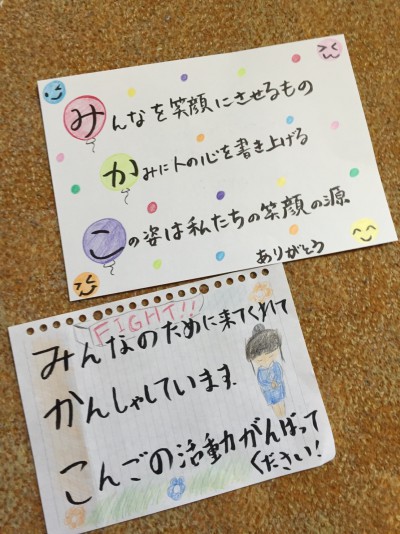 みんなを笑顔にさせるもの
かみに人の心を書き上げる
この姿は私たちの笑顔の源
ありがとう
FIGHT!!
みんなのために来てくれて
かんしゃしています
こんごの活動がんばって
ください!